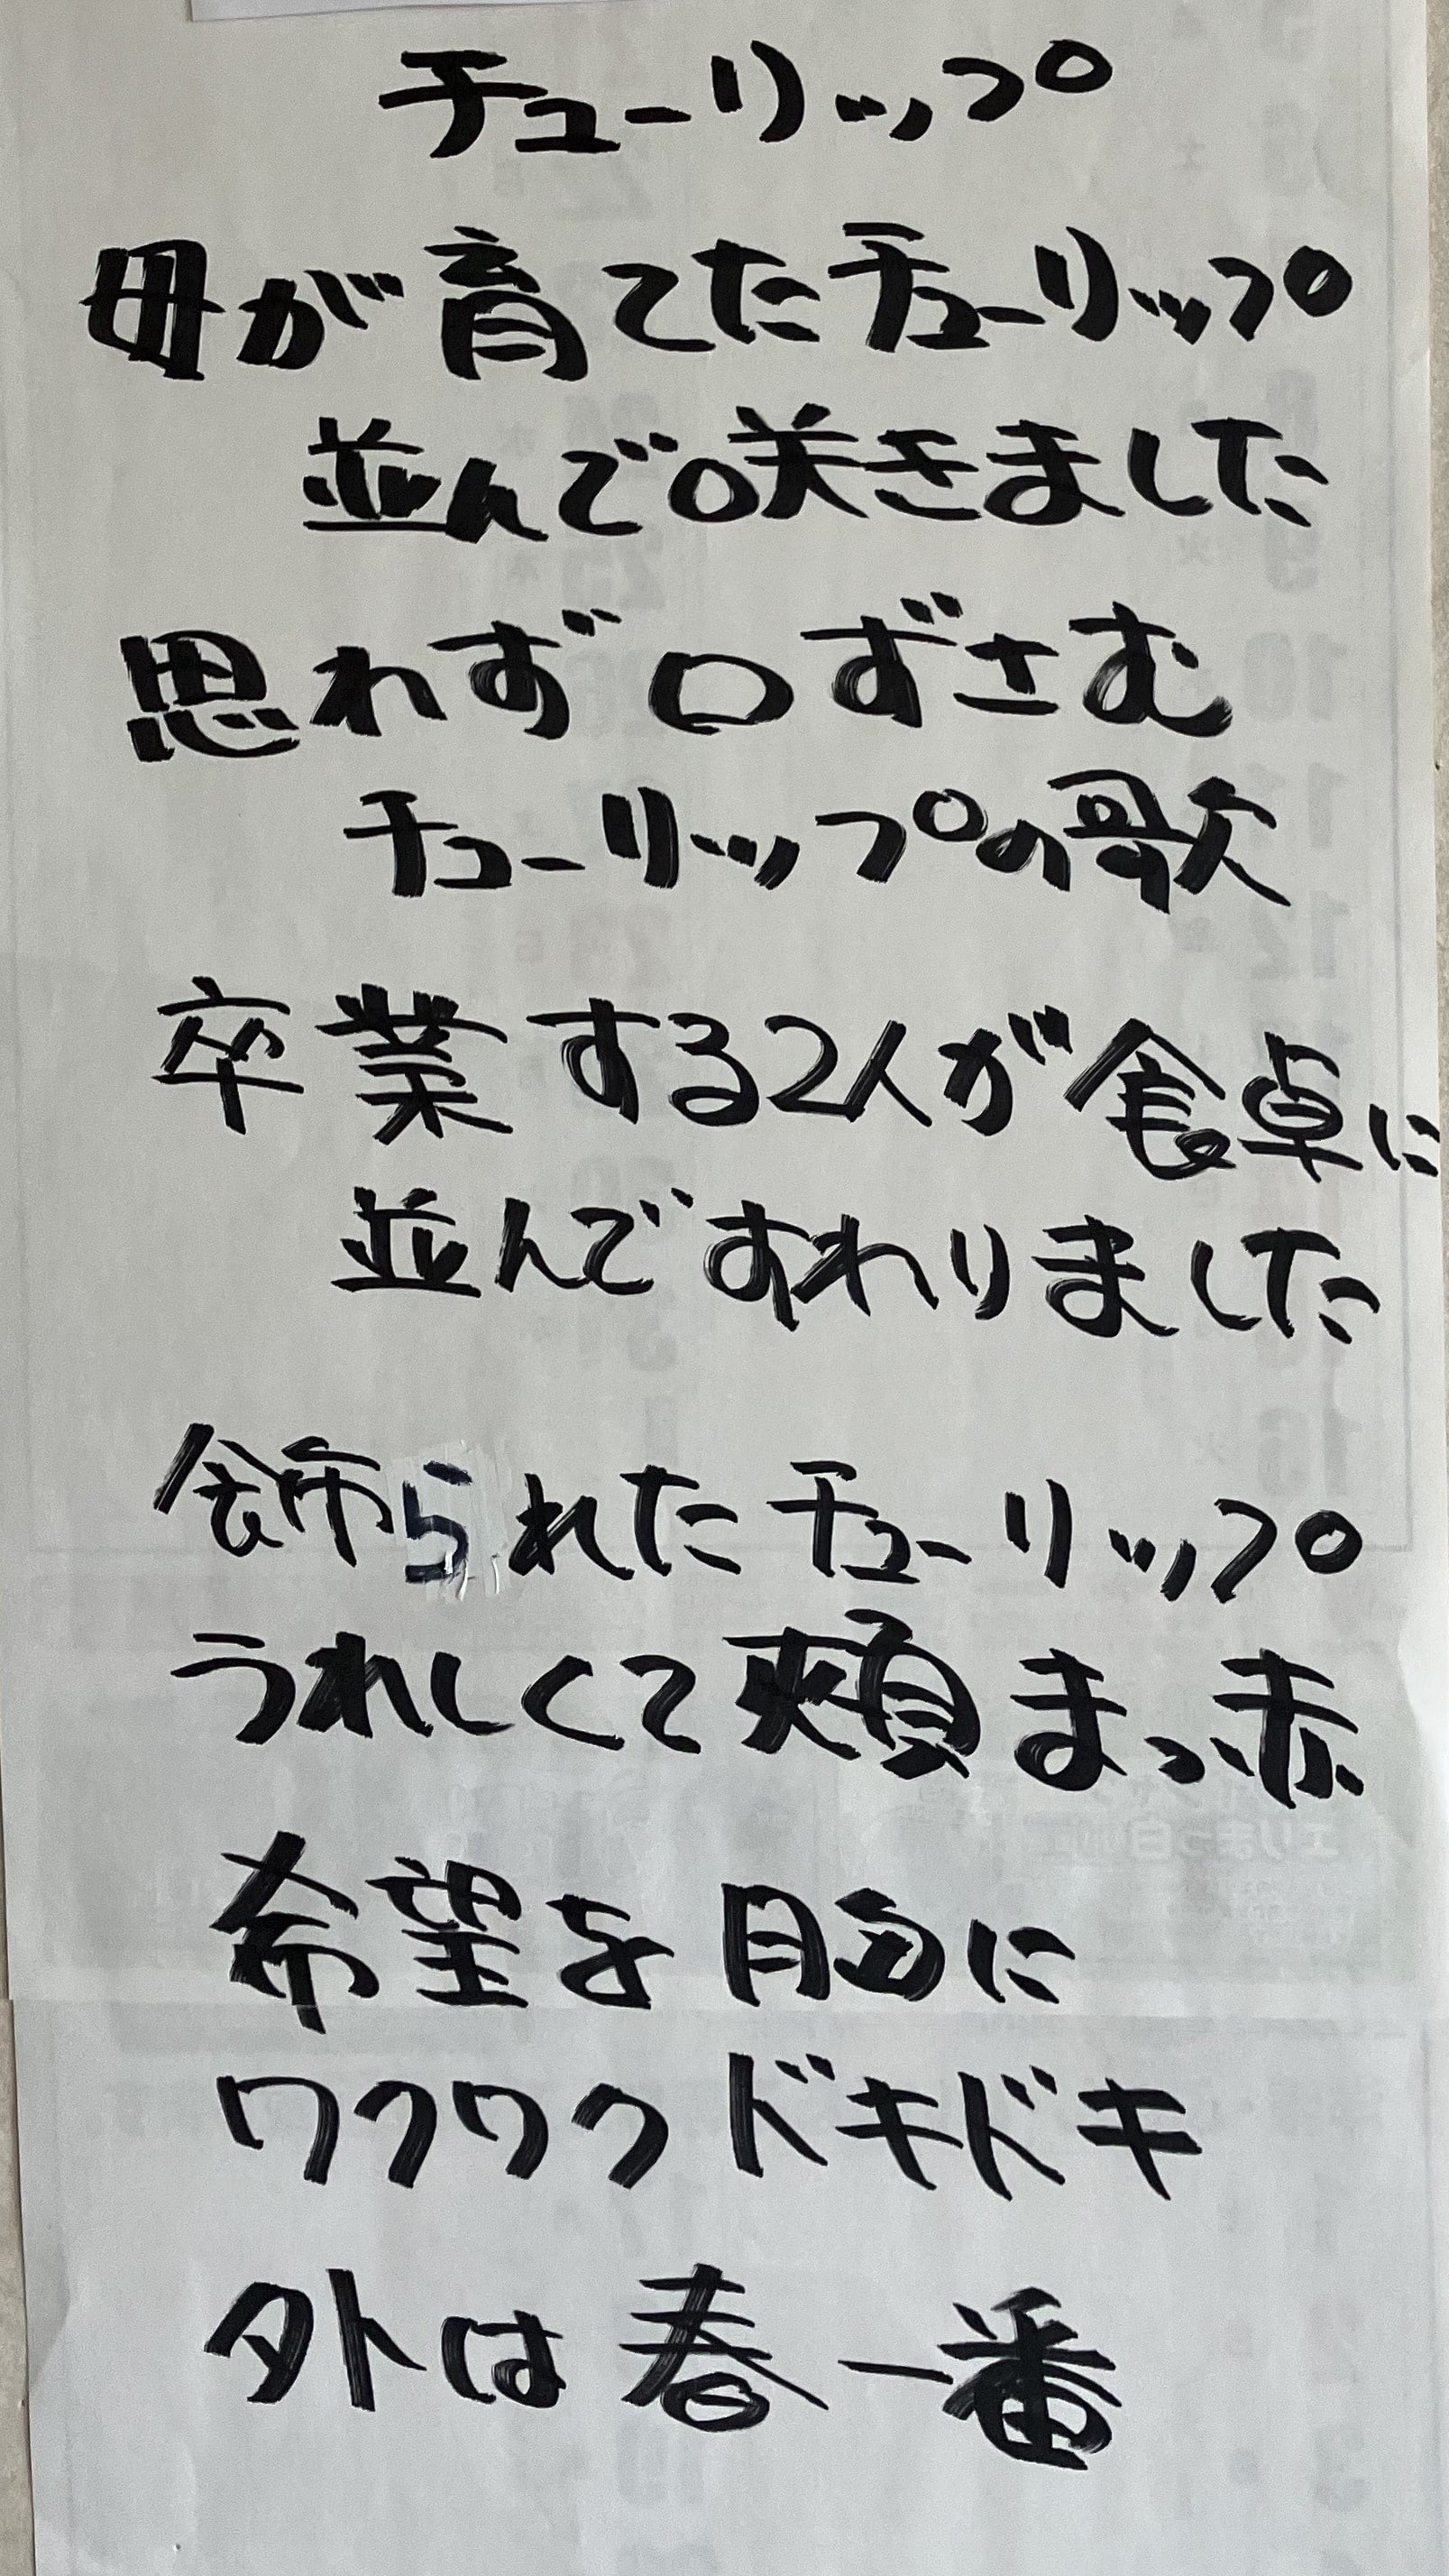 チューリップ
母が育てたチューリップ
並んで咲きました
思わず口ずさむ
チューリップの歌
卒業する2人が食卓に
並んですわりました
飾られたチューリップ
うれしくて頬まっ赤
希望を胸に
ワクワクドキドキ
外は春一番